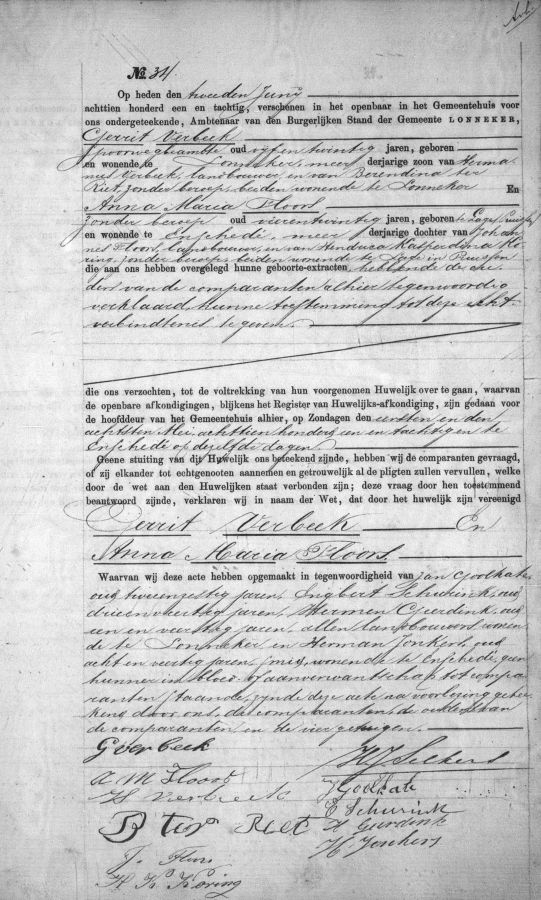 № 34
Op heden den tweeden Junij
achttien honderd een en tachtig, verschenen in het openbaar in het Gemeentehuis voor
ons ondergeteekende, Ambtenaar van den Burgerlijken Stand der Gemeente LONNEKER,
Gerrit Verbeek
spoorwegbeambte oud vijfentwintig jaren, geboren
en wonende te Lonneker, meerderjarige zoon van Herma-
nus Verbeek, landbouwer, en van Berendina ter
Riet, zonder beroep, beiden wonende te Lonneker En
Anna Maria Floors
zonder beroep oud vierentwintig jaren, geboren te Lage, Pruissen
en wonende te Enschede, meerderjarige dochter van Johan-
nes Floors, landbouwer, en van Hendrica Kasperdina Kö-
ring, zonder beroep, beiden wonende te Lage in Pruissen
die aan ons hebben overgelegd hunne geboorte-extracten, hebbende de ou-
ders van de comparanten alhier tegenwoordig
verklaard hunne toestemming tot deze echt-
verbindtenis te geven.
die ons verzochten, tot de voltrekking van hun voorgenomen Huwelijk over te gaan, waarvan
de openbare afkondigingen, blijkens het Register van Huwelijks-afkondiging, zijn gedaan voor
de hoofddeur van het Gemeentehuis alhier, op Zondagen den eersten en den
achtsten Mei, achttien honderd een en tachtig en te
Enschede op dezelfde dagen.
Geene stuiting van dit Huwelijk ons beteekend zijnde, hebben wij de comparanten gevraagd,
of zij elkander tot echtgenooten aannemen en getrouwelijk al de pligten zullen vervullen, welke
door de wet aan den Huwelijken staat verbonden zijn; deze vraag door hen toestemmend
beantwoord zijnde, verklaren wij in naam der Wet, dat door het huwelijk zijn vereenigd
Gerrit Verbeek En
Anna Maria Floors.
Waarvan wij deze acte hebben opgemaakt in tegenwoordigheid van Jan Goolkate,
oud tweeenzestig jaren, Engbert Schurink, oud
drieenveertig jaren, Hermen Geerdink, oud
een en veertig jaren, allen landbouwers, wonen-
de te Lonneker en Herman Jonkers, oud
acht en veertig jaren, smid, wonende te Enschede, geen
hunner in bloed- of aanverwantschap tot compa-
ranten staande, zijnde deze acte na voorlezing getee-
kend door ons, de comparanten, de ouders van
de comparanten en de vier getuigen.
G Verbeek
H J Selkers
A. M. Floors
J Goolkate
H Verbeek
E Schurink
B ter Riet
H Geerdink
H Jonkers
J. Floors
H K Köring